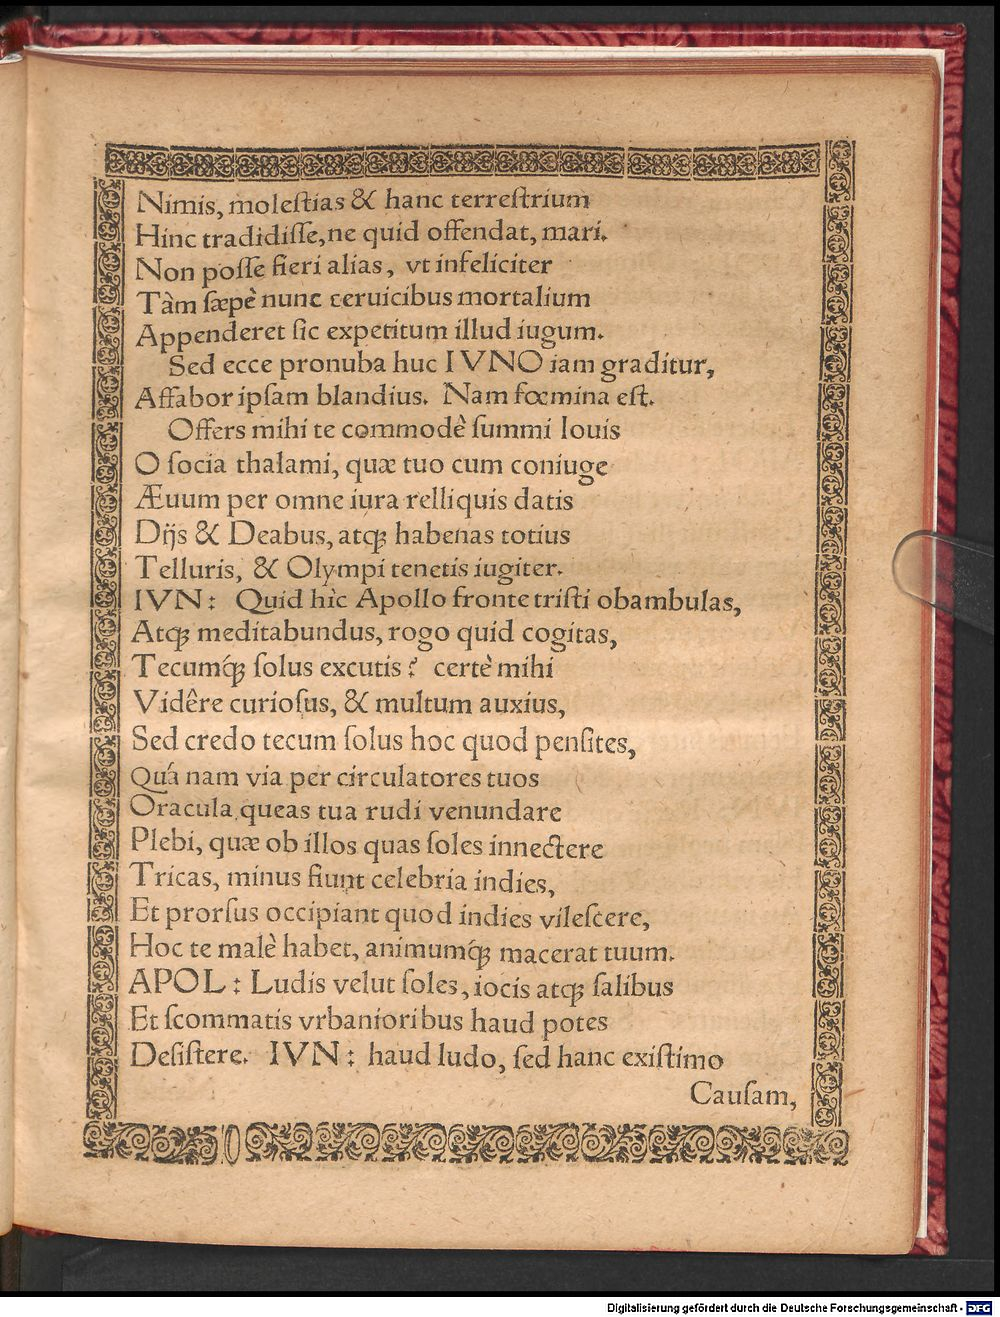 Nimis, moleſtias & hanc terreſtrium
Hinc tradidiſſe, ne quid offendat, mari.
Non poſſe fieri alias, vt infeliciter
Tàm ſæpè nunc ceruicibus mortalium
Appenderet ſic expetitum illud iugum.
Sed ecce pronuba huc IVNO iam graditur,
Affabor ipſam blandius. Nam fœmina eſt.
Offers mihi te commodè ſummi Iouis
O ſocia thalami, quæ tuo cum coniuge
Æuum per omne iura relliquis datis
Dijs & Deabus, atq́; habenas totius
Telluris, & Olympi tenetis iugiter.
IVN: Quid hìc Apollo fronte triſti obambulas,
Atq́; meditabundus, rogo quid cogitas,
Tecumq́; ſolus excutis? certè mihi
Vidêre curioſus, & multum auxius,
Sed credo tecum ſolus hoc quod penſites,
Quá nam via per circulatores tuos
Oracula queas tua rudi venundare
Plebi, quæ ob illos quas ſoles innectere
Tricas, minus fiunt celebria indies,
Et prorſus occipiant quod indies vileſcere,
Hoc te malè habet, animumq́; macerat tuum.
APOL: Ludis velut ſoles, iocis atq́; ſalibus
Et ſcommatis vrbanioribus haud potes
Deſiſtere. IVN: haud ludo, ſed hanc exiſtimo
Cauſam,
Digitalisierung gefördert durch die Deutsche Forschungsgemeinschaft - DFG